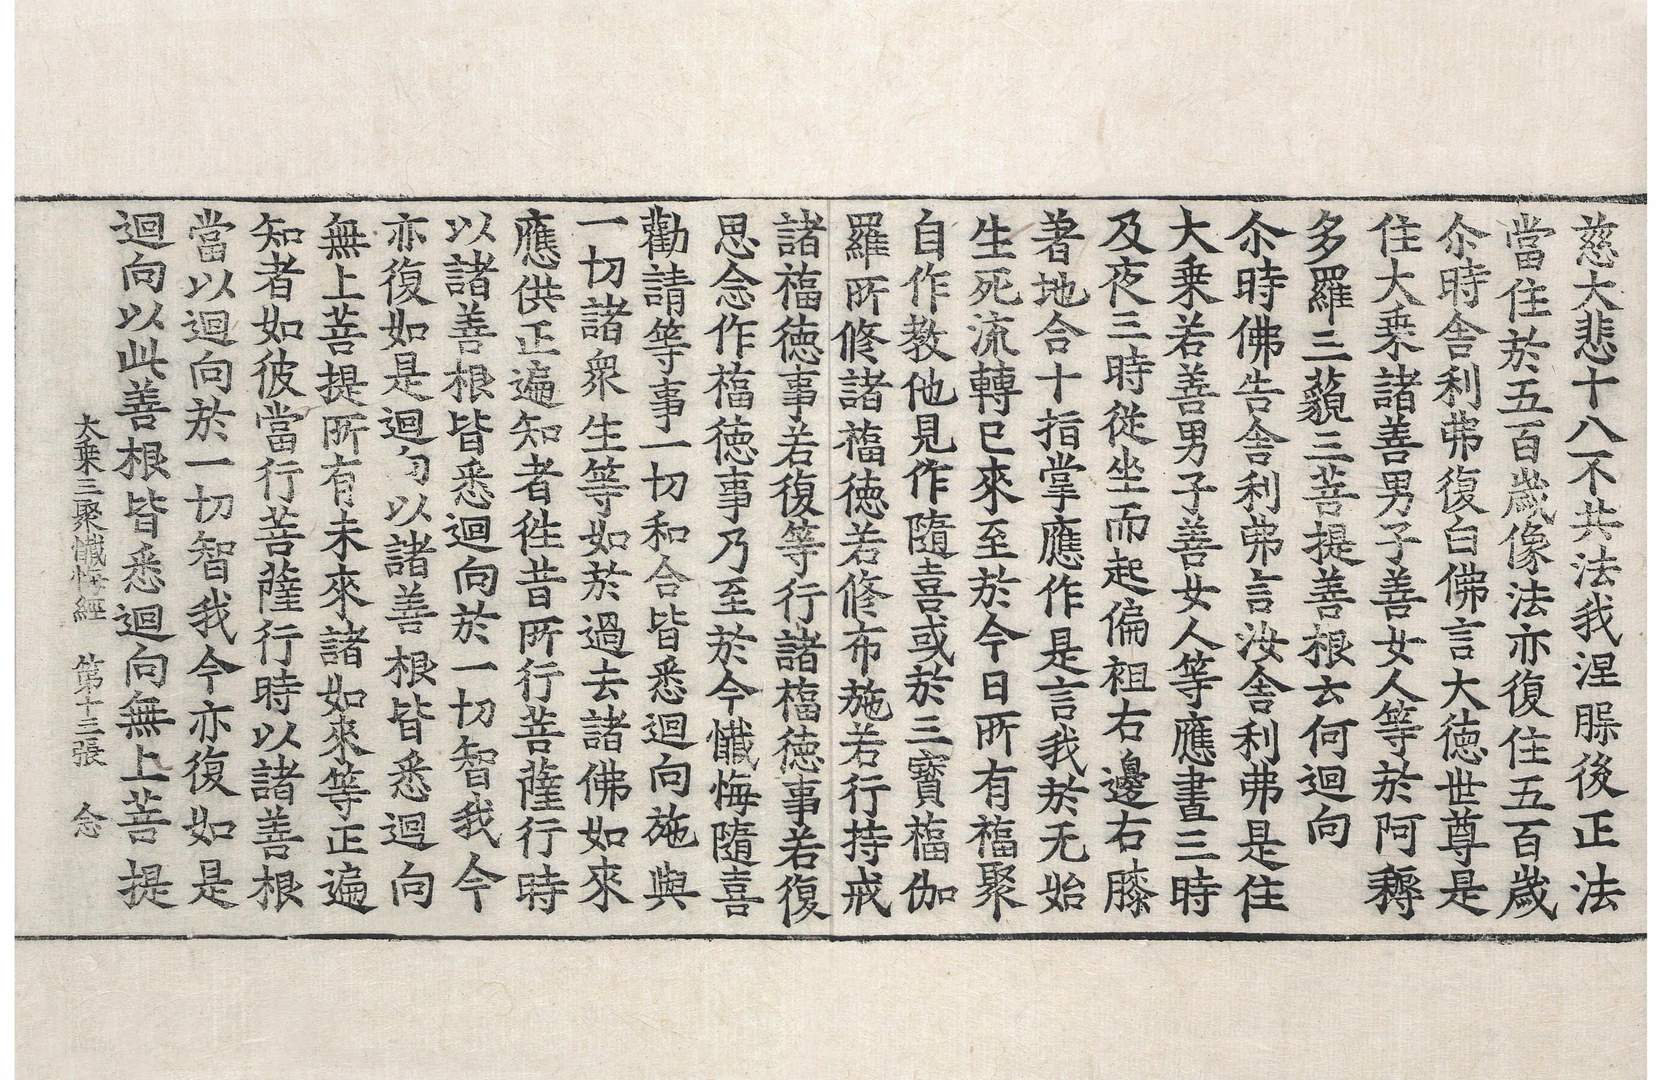 慈大悲十八不共法我涅槃後正法
當住於五百歲像法亦復住五百歲
尒時舎利弗復白佛言大德世尊是
住大乗諸善男子善女人等於阿耨
多羅三藐三菩提善根云何迴向
尒時佛告舎利弗言汝舎利弗是住
大乗若善男子善女人等應晝三時
及夜三時從坐而起偏袒右邊右膝
著地合十指掌應作是言我於无始
生死流轉已來至於今日所有福聚
自作教他見作隨喜或於三寶福伽
羅所修諸福德若修布施若行持戒
諸福徳事若復等行諸福徳事若復
思念作福德事乃至於今懺悔隨喜
勸請等事一切和合皆悉迴向施與
一切諸衆生等如於過去諸佛如來
應供正遍知者徃昔所行菩薩行時
以諸善根皆悉迴向於一切智我今
亦復如是迴向以諸善根皆悉迴向
無上菩提所有未來諸如來等正遍
知者如彼當行菩薩行時以諸善根
當以迴向於一切智我今亦復如是
迴向以此善根皆悉迴向無上菩提
大乗三聚懺悔經 第十三張 念